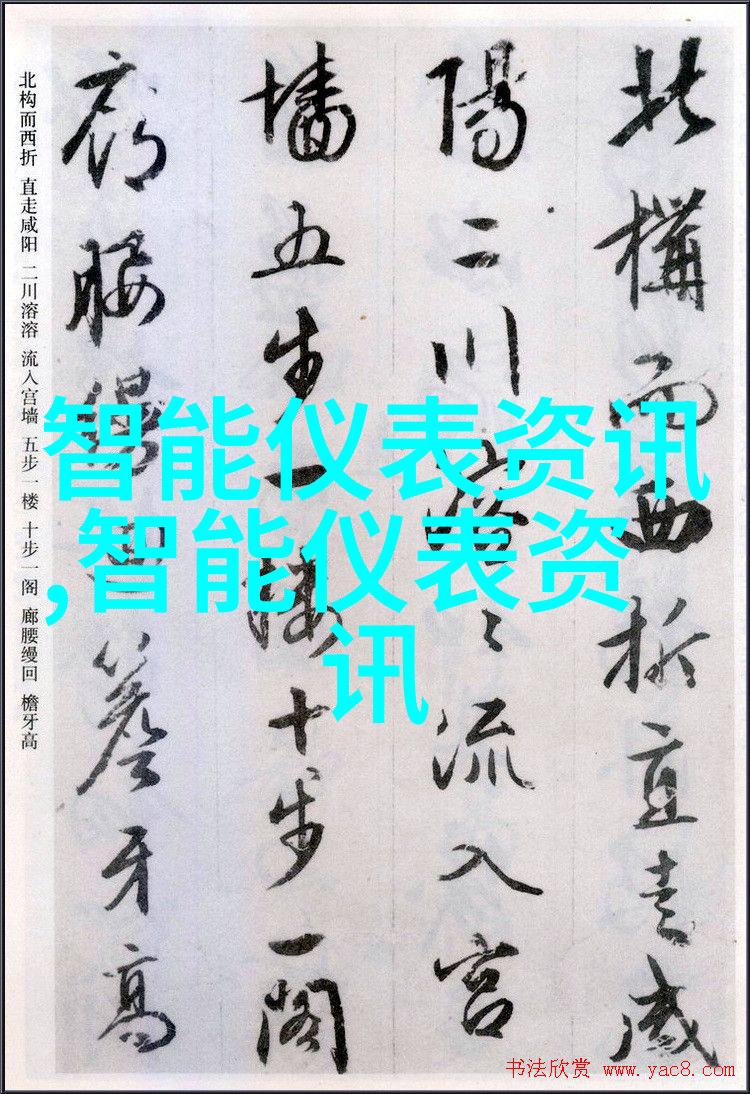 北構而西折直走咸
陽二川溶〻流入宮
墻五步一樓十步一閣
廊腰縵回簷牙高
北构而西折 直走咸阳 二川溶溶 流入宫墙 五步一楼 十步一阁 廊腰缦回 檐牙高
智能仪表资讯
,智能仪表资
讯
书法欣赏 www.yac8.com